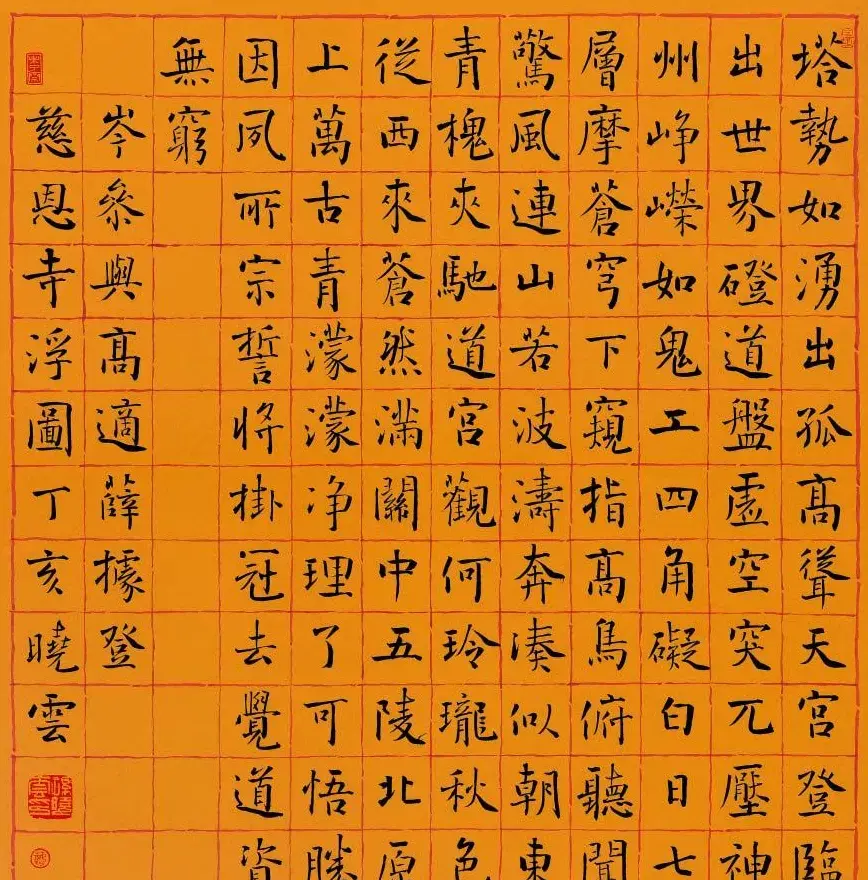 塔勢如湧出孤髙聳天宮登臨
出世界磴道盤虛空突兀壓神
州峥嶸如鬼工四角礙白日七
層摩蒼穹下窺指髙鳥俯聽聞
驚風連山若波濤奔湊似朝東
青槐夾馳道宮觀何玲瓏秋色
從西來蒼然滿關中五陵北原
上萬古青濛濛净理了可悟勝
因夙所宗誓將掛冠去覺道資
無窮
岑參與髙適薛據登
慈恩寺浮圖丁亥曉雲